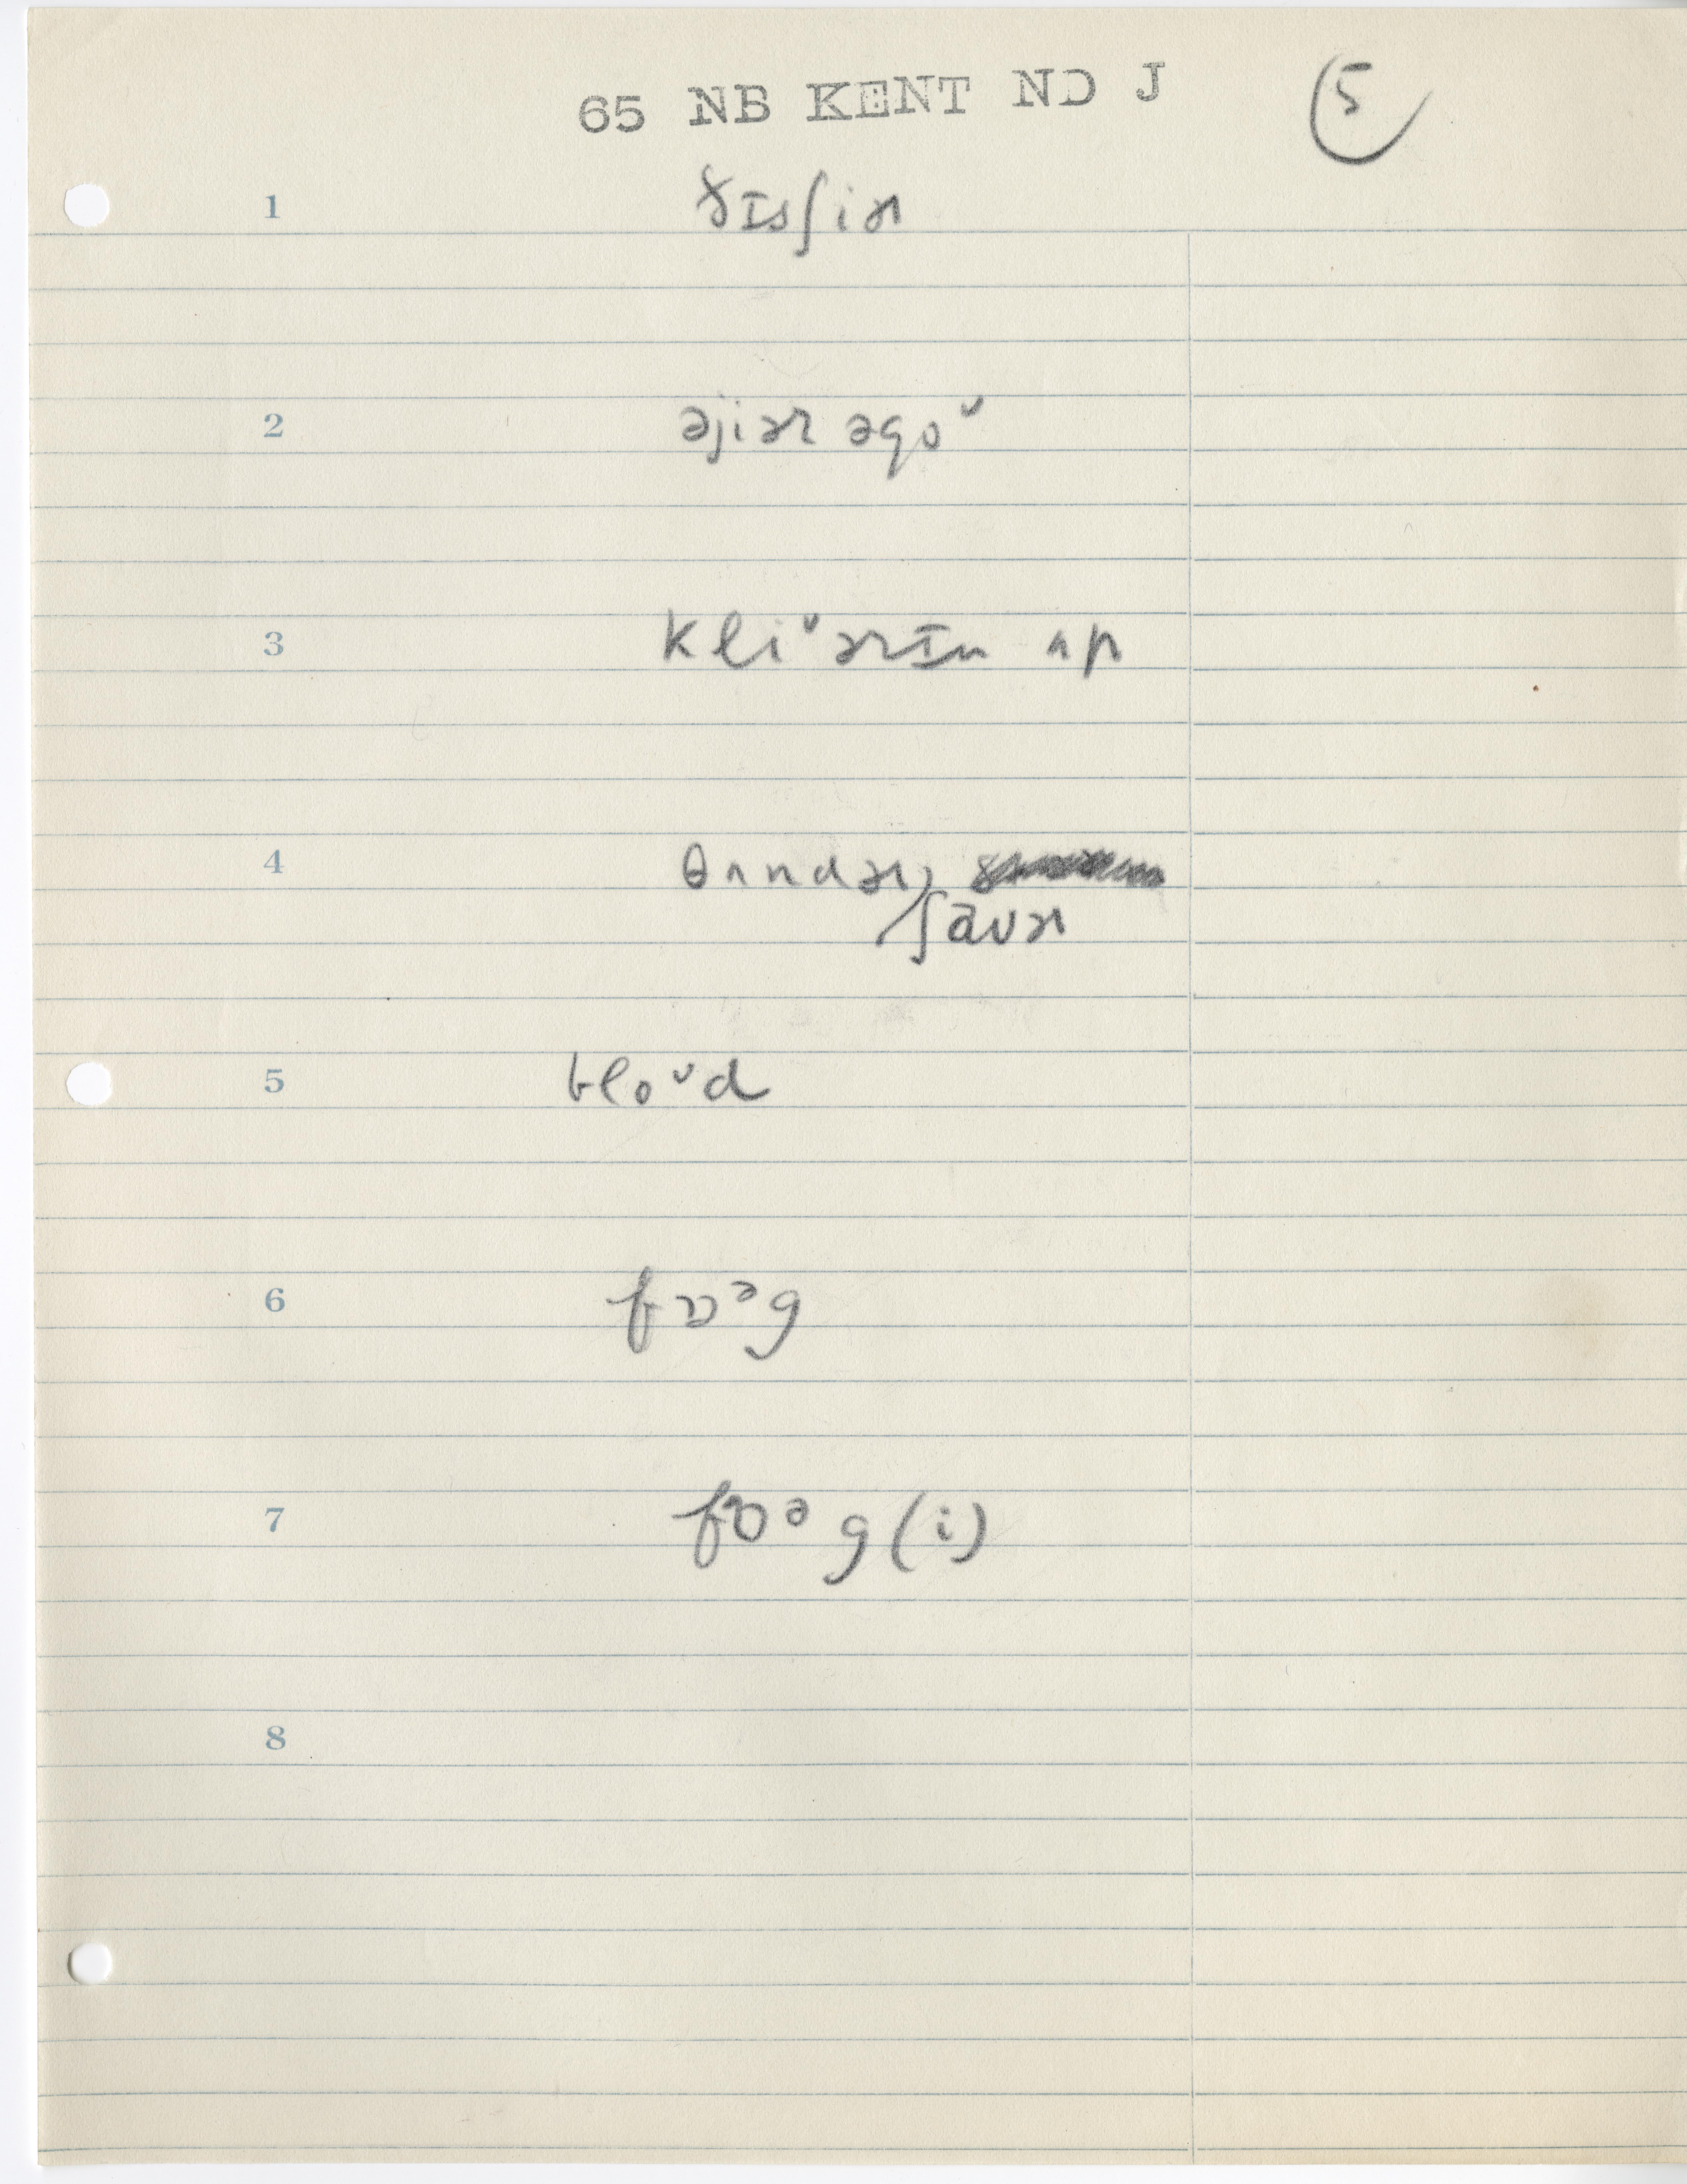 65 NB KENT ND J 5
1 ðɪsʃiɚ
2 əjiɚr əgoᵕ
3 kliᵕɚrɪn ʌp
4 θʌndɚ,
ʃāuɚ
5 bloᵕd
6 fɒᵊg
7 fɒᵊg(i)
8